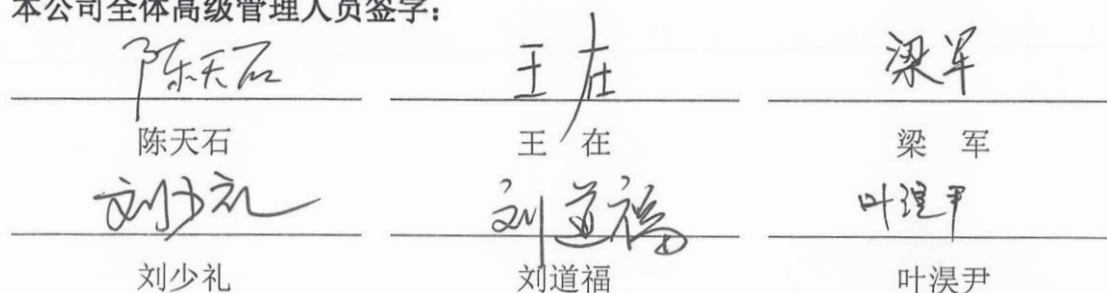 本公司全体高级管理人员签字：
陈天石 王在 梁军
陈天石 王 在 梁 军
刘少礼 刘道福 叶淏尹
刘少礼 刘道福 叶淏尹